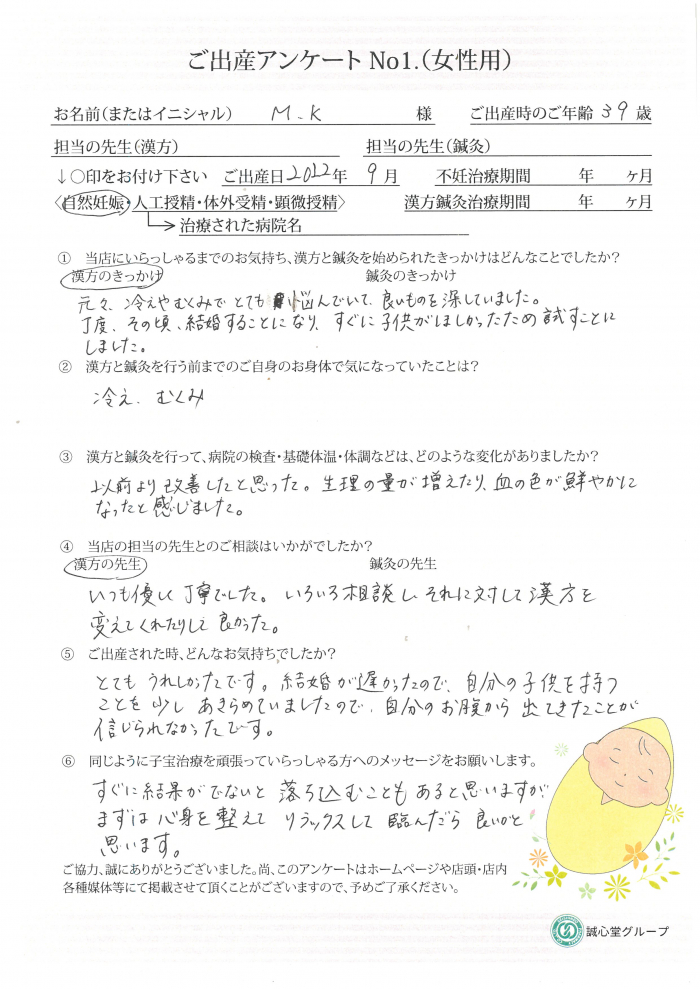 ご出産アンケート No1.(女性用)
お名前(またはイニシャル) M.K 様 ご出産時のご年齢 39 歳
担当の先生(漢方) 担当の先生(鍼灸)
↓○印をお付け下さい ご出産日 2022年 9月 不妊治療期間 年 ヶ月
〈自然妊娠・人工授精・体外受精・顕微授精〉 漢方鍼灸治療期間 年 ヶ月
治療された病院名
① 当店にいらっしゃるまでのお気持ち、漢方と鍼灸を始められたきっかけはどんなことでしたか?
漢方のきっかけ 鍼灸のきっかけ
元々、冷えやむくみでとても悩んでいて、良いものを探していました。
丁度、その頃、結婚することになり、すぐに子供がほしかったため試すことに
しました。
② 漢方と鍼灸を行う前までのご自身のお身体で気になっていたことは?
冷え、むくみ
③ 漢方と鍼灸を行って、病院の検査・基礎体温・体調などは、どのような変化がありましたか?
以前より改善したと思った。生理の量が増えたり、血の色が鮮やかに
なったと感じました。
④ 当店の担当の先生とのご相談はいかがでしたか?
漢方の先生 鍼灸の先生
いつも優しく丁寧でした。いろいろ相談し、それに対して漢方を
変えてくれたりして良かった。
⑤ ご出産された時、どんなお気持ちでしたか?
とてもうれしかったです。結婚が遅かったので、自分の子供を持つ
ことを少しあきらめていましたので、自分のお腹から出てきたことが
信じられなかったです。
⑥ 同じように子宝治療を頑張っていらっしゃる方へのメッセージをお願いします。
すぐに結果がでないと落ち込むこともあると思いますが
まずは心身を整えてリラックスして臨んだら良いかと
思います。
ご協力、誠にありがとうございました。尚、このアンケートはホームページや店頭・店内
各種媒体等にて掲載させて頂くことがございますので、予めご了承ください。
誠心堂グループ